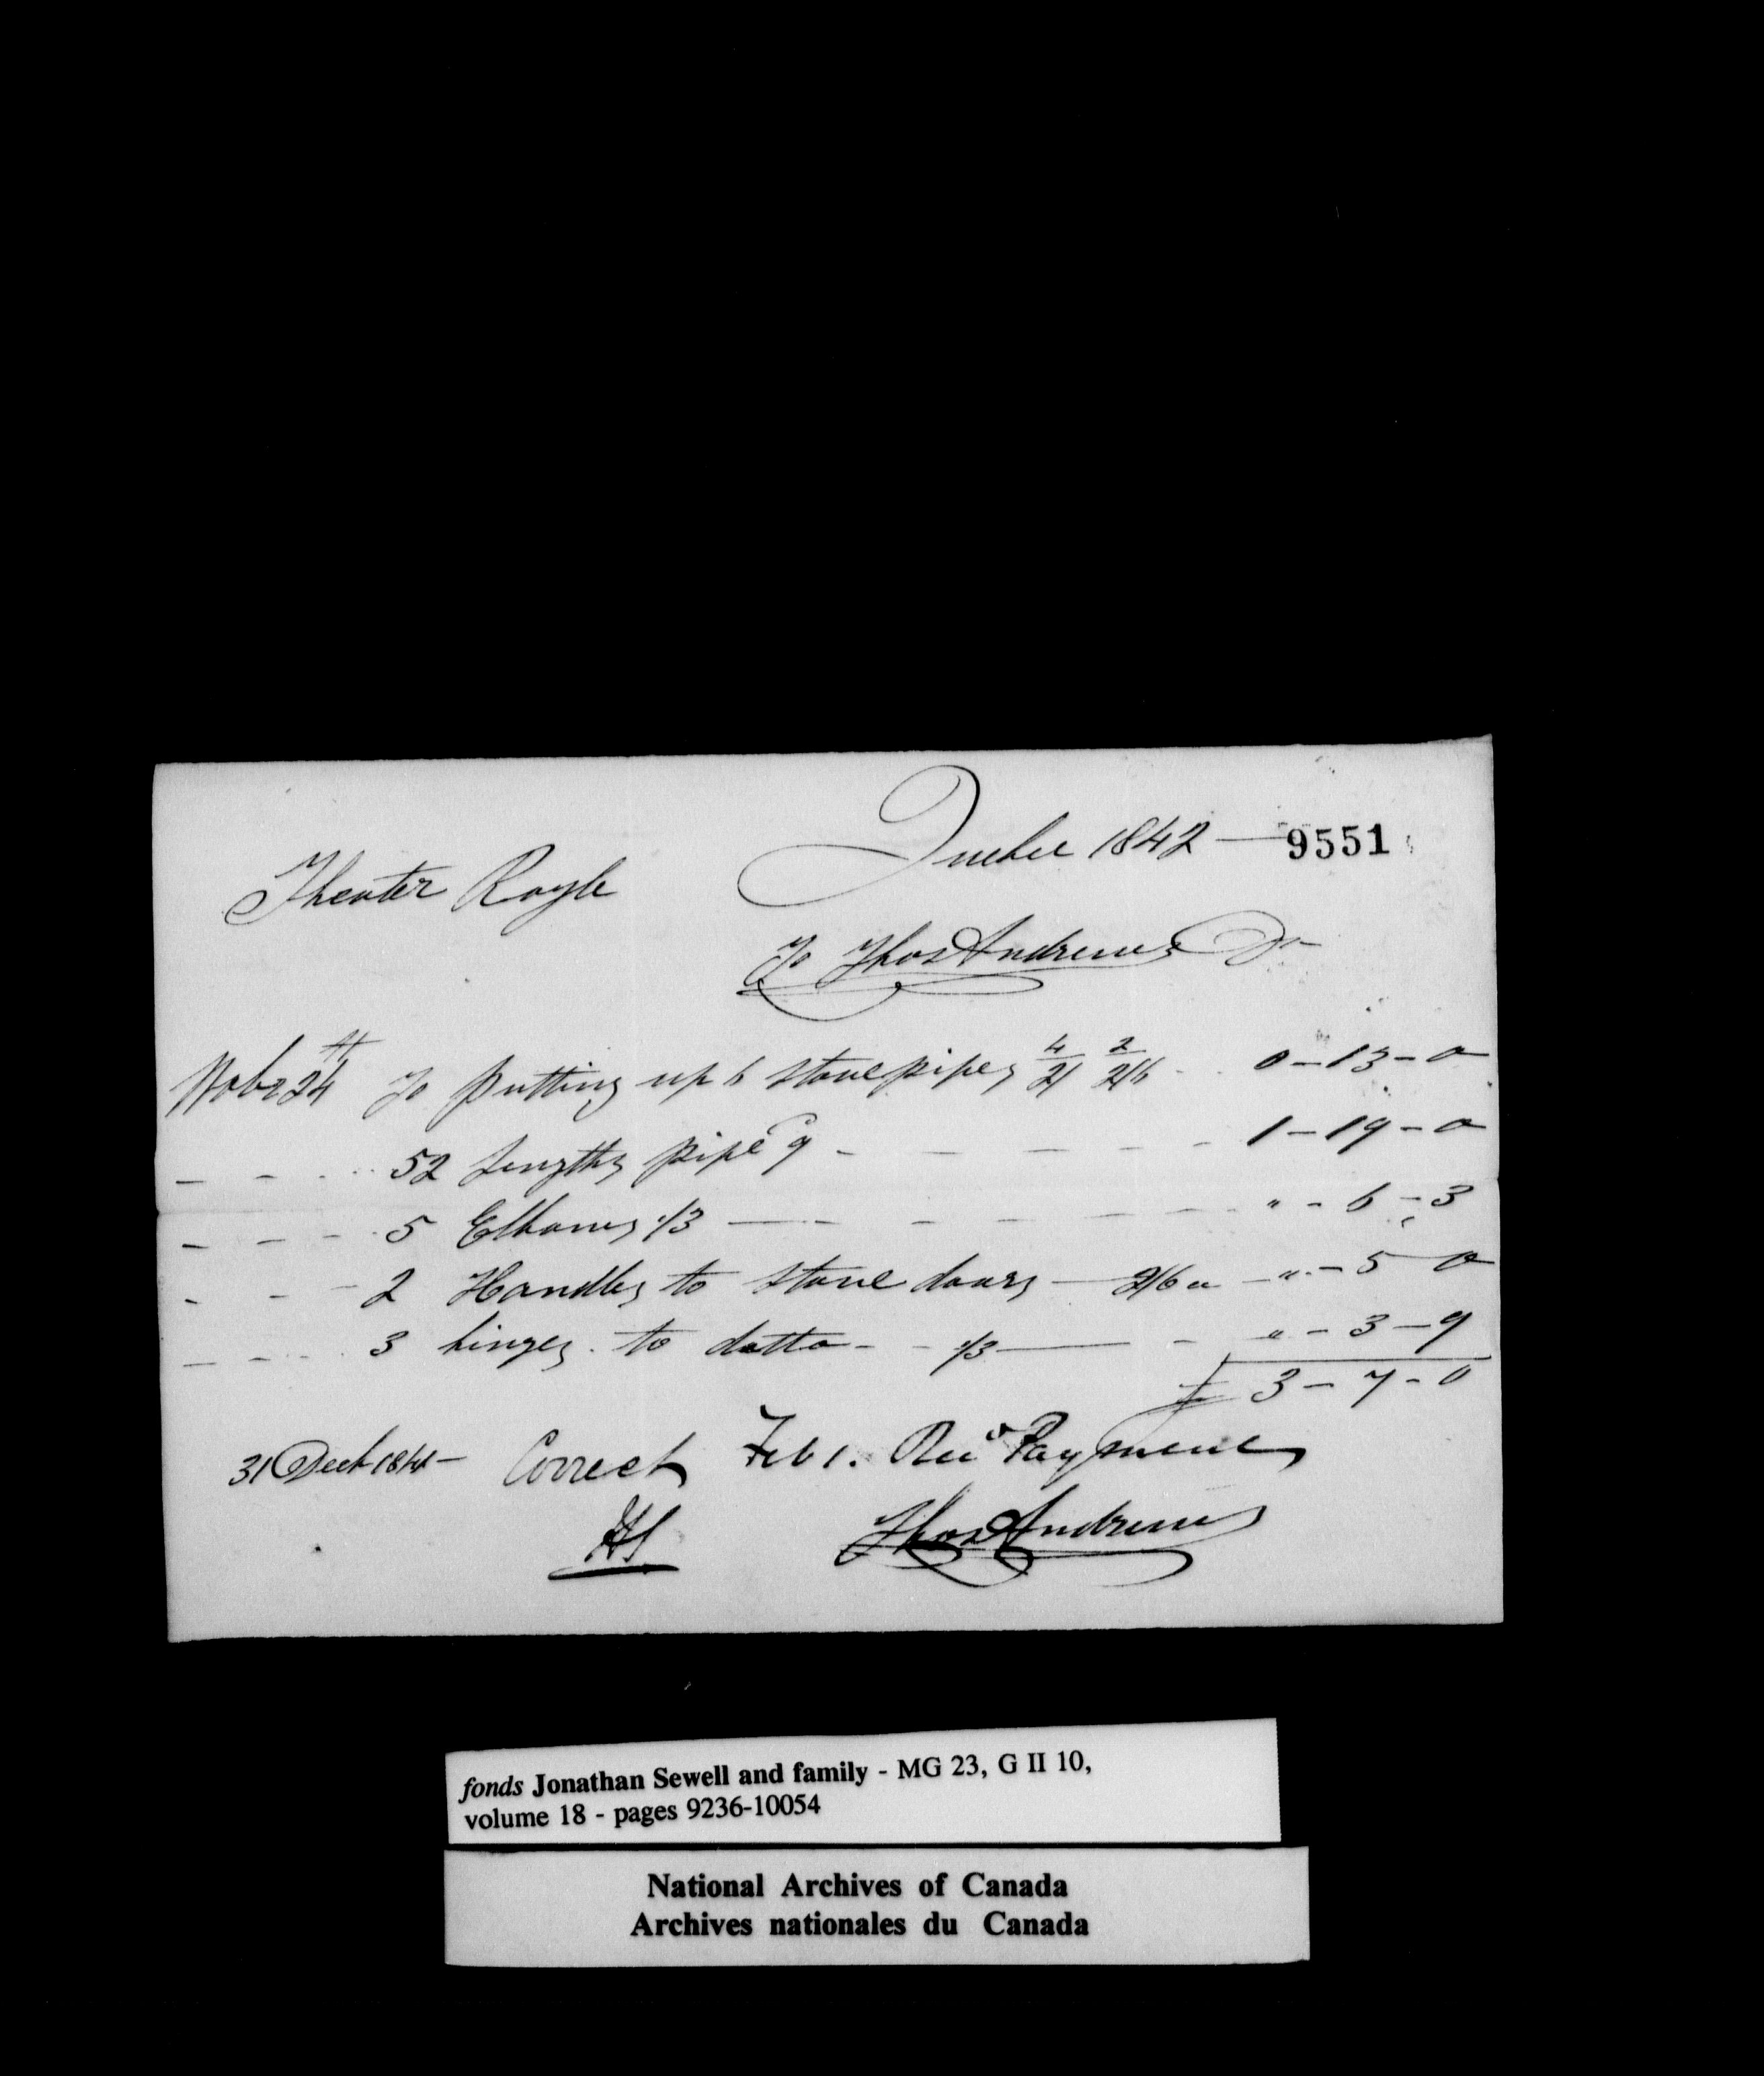 Quebec 1842 — 9551
Theater Royle
To Thos Andrews Dr
Nobr 24th To putting up 6 stove pipes 4/2/ 2/2/6 - - 0 - 13 - 0
- - - - 52 Lengths pipe @ 9 - - - - - 1 - 19 - 0
- - - - 5 Elbows 1/3 — - - - - - - " - 6 - 3
- - - 2 Handles to stove doors — 2/6 a - " - 5 - 0
- - - - 3 hinges to dotto - - 1/3 — - " - 3 - 9
£ 3 - 7 - 0
31 Decb 1841 — Correct Feb 1. Recd Payment
HS Thos Andrews
fonds Jonathan Sewell and family - MG 23, G II 10,
volume 18 - pages 9236-10054
National Archives of Canada
Archives nationales du Canada